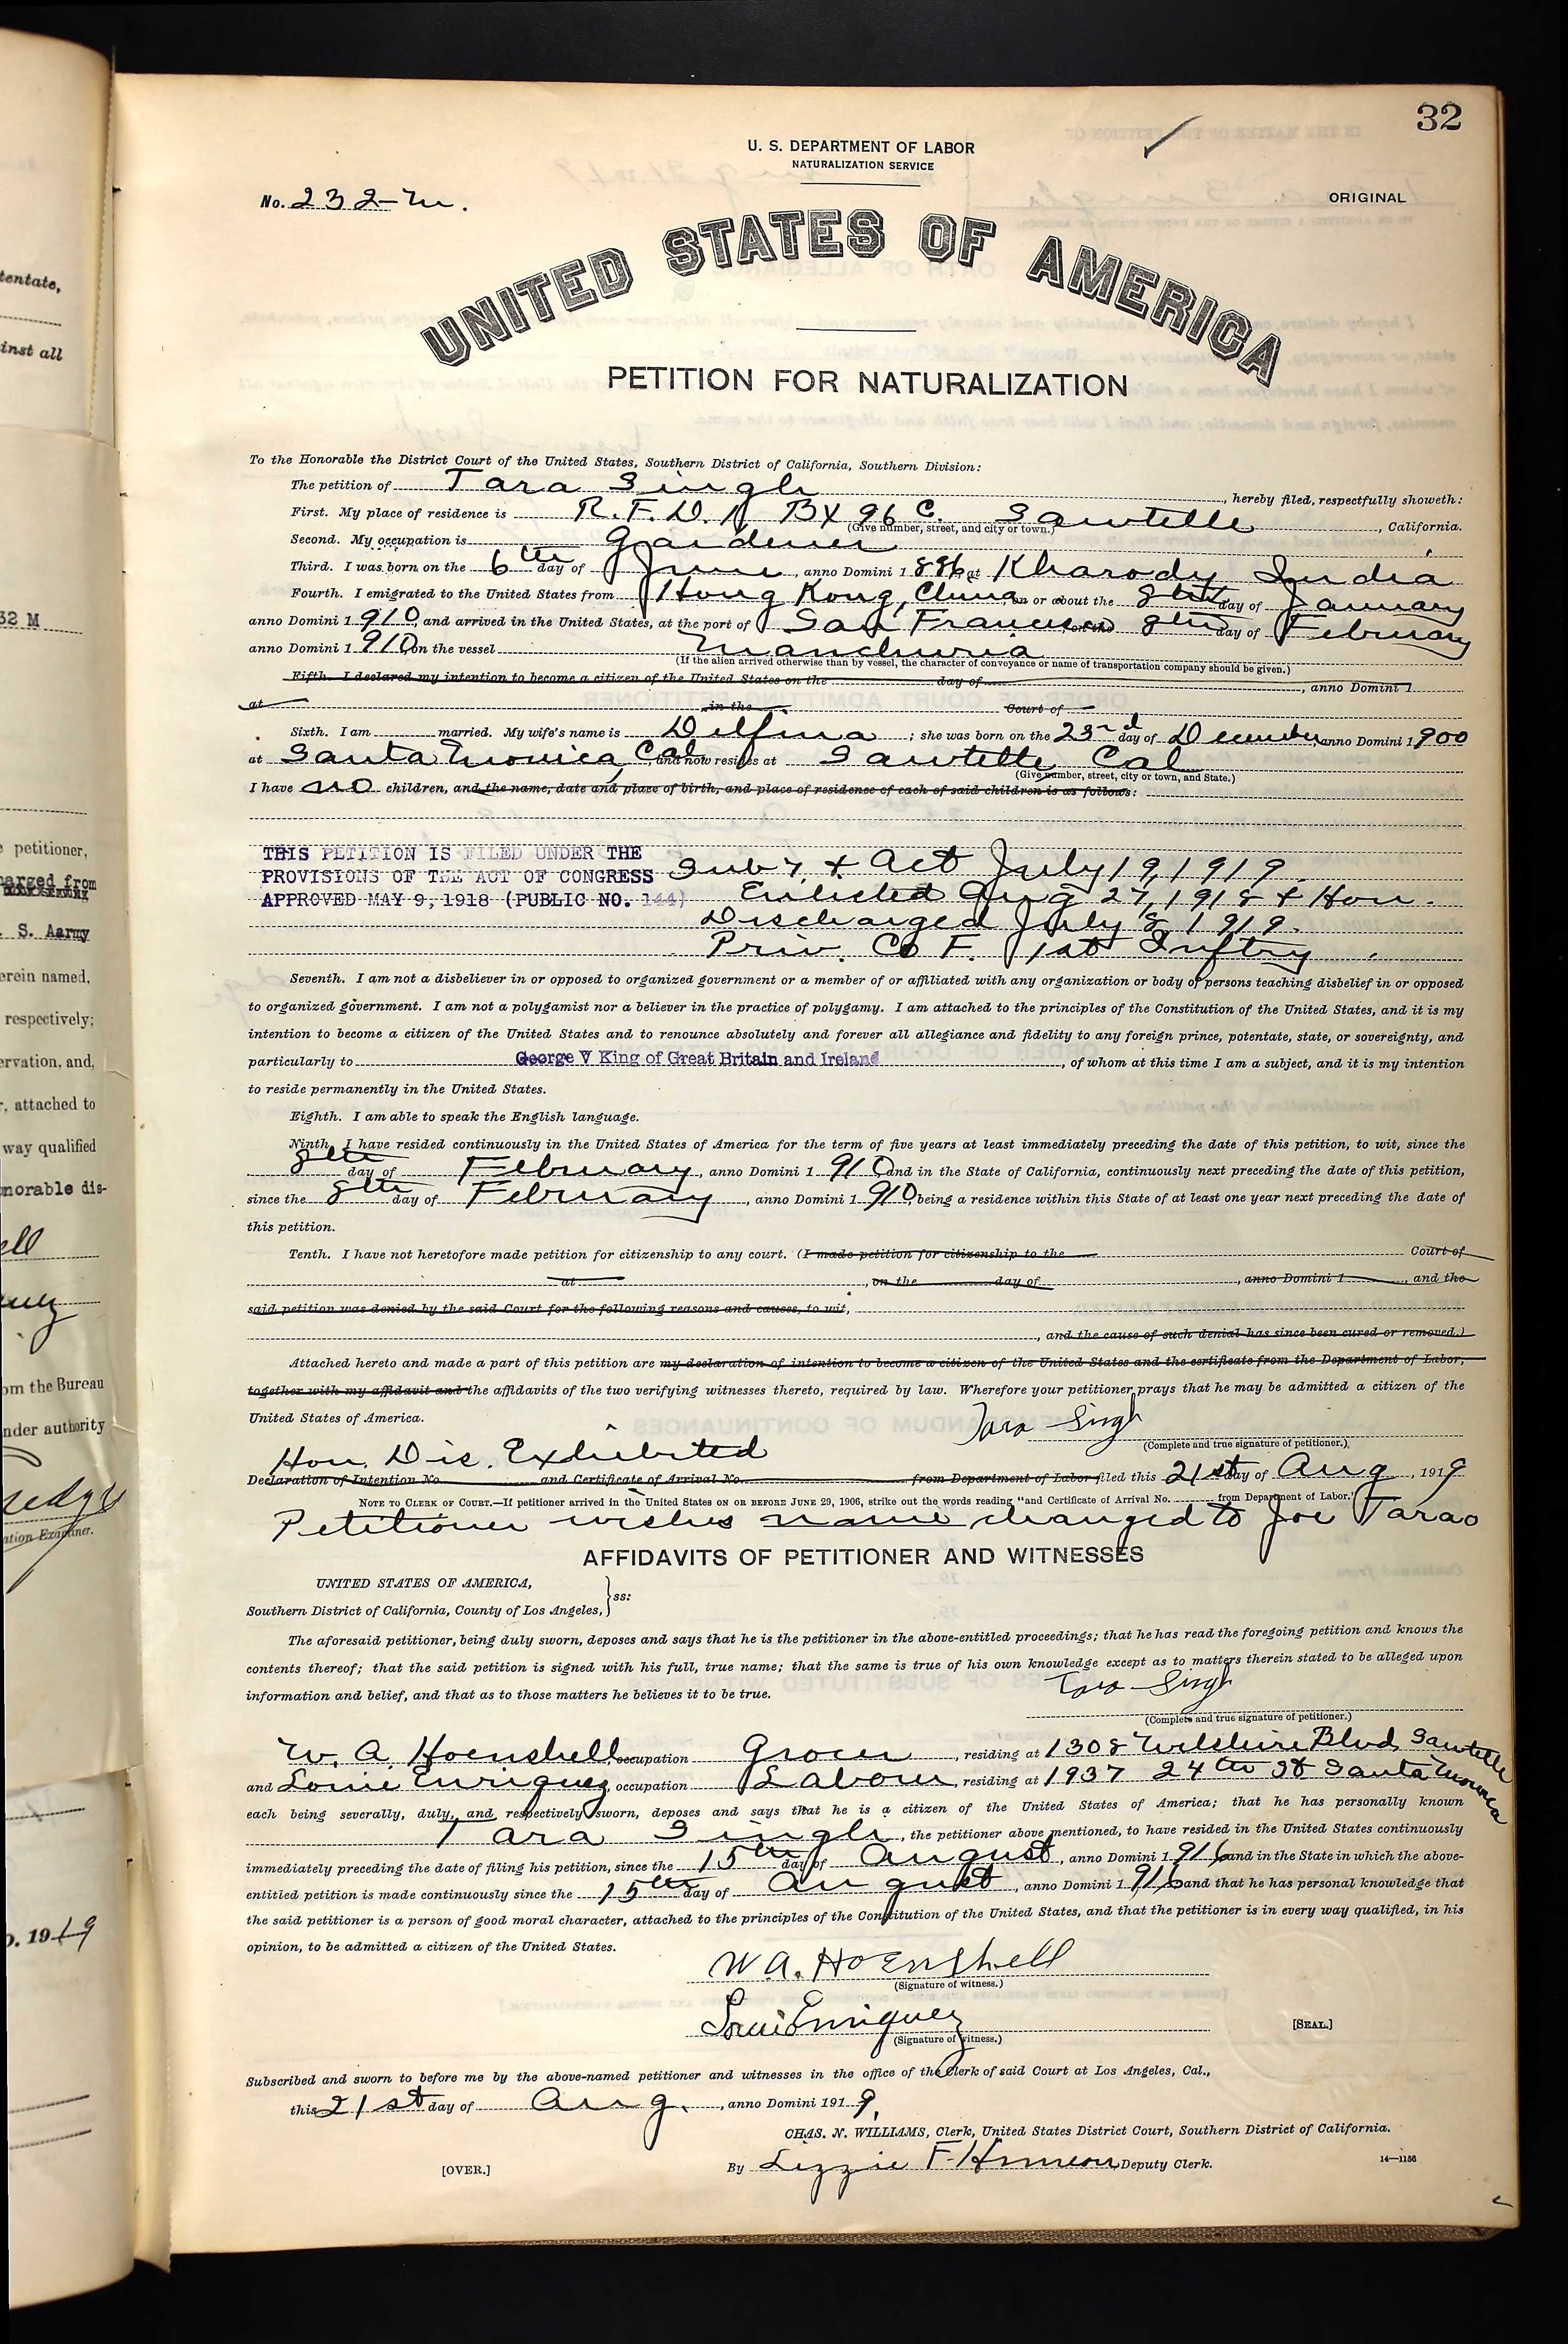 tentate,
inst all
32 M
petitioner,
harged from
S. Aarmy
erein named,
respectively;
ervation, and,
, attached to
way qualified
norable dis-
ell
om the Bureau
nder authority
ation Examiner.
. 1919
32
U. S. DEPARTMENT OF LABOR
NATURALIZATION SERVICE
No. 232-M.
ORIGINAL
UNITED STATES OF AMERICA
PETITION FOR NATURALIZATION
To the Honorable the District Court of the United States, Southern District of California, Southern Division:
The petition of Tara Singh, hereby filed, respectfully showeth:
First. My place of residence is R.F.D. 1, Bx 96 C. Sawtelle, California.
(Give number, street, and city or town.)
Second. My occupation is Gardener
Third. I was born on the 6th day of June, anno Domini 1886, at Kharody India
Fourth. I emigrated to the United States from Hong Kong, China, on or about the 8th day of January
anno Domini 1910, and arrived in the United States, at the port of San Francisco on the 8th day of February
anno Domini 1910 on the vessel Manchuria
(If the alien arrived otherwise than by vessel, the character of conveyance or name of transportation company should be given.)
Fifth. I declared my intention to become a citizen of the United States on the day of , anno Domini 1
at in the Court of
Sixth. I am married. My wife's name is Delfina; she was born on the 23rd day of December, anno Domini 1900
at Santa Monica, Cal, and now resides at Sawtelle Cal
(Give number, street, city or town, and State.)
I have no children, and the name, date and place of birth, and place of residence of each of said children is as follows:
THIS PETITION IS FILED UNDER THE
PROVISIONS OF THE ACT OF CONGRESS
APPROVED MAY 9, 1918 (PUBLIC NO. 144)
Sub 7, & Act July 19, 1919.
Enlisted Aug 27, 1918 & Hon.
Discharged July 8 1919.
Priv. Co F. 1st Inftry.
Seventh. I am not a disbeliever in or opposed to organized government or a member of or affiliated with any organization or body of persons teaching disbelief in or opposed
to organized government. I am not a polygamist nor a believer in the practice of polygamy. I am attached to the principles of the Constitution of the United States, and it is my
intention to become a citizen of the United States and to renounce absolutely and forever all allegiance and fidelity to any foreign prince, potentate, state, or sovereignty, and
particularly to George V King of Great Britain and Ireland, of whom at this time I am a subject, and it is my intention
to reside permanently in the United States.
Eighth. I am able to speak the English language.
Ninth. I have resided continuously in the United States of America for the term of five years at least immediately preceding the date of this petition, to wit, since the
8th day of February, anno Domini 1910 and in the State of California, continuously next preceding the date of this petition,
since the 8th day of February, anno Domini 1910, being a residence within this State of at least one year next preceding the date of
this petition.
Tenth. I have not heretofore made petition for citizenship to any court. (I made petition for citizenship to the Court of
at , on the day of , anno Domini 1 , and the
said petition was denied by the said Court for the following reasons and causes, to wit,
, and the cause of such denial has since been cured or removed.)
Attached hereto and made a part of this petition are my declaration of intention to become a citizen of the United States and the certificate from the Department of Labor,
together with my affidavit and the affidavits of the two verifying witnesses thereto, required by law. Wherefore your petitioner prays that he may be admitted a citizen of the
United States of America.
Tara Singh
(Complete and true signature of petitioner.)
Hon. Dis. Exhibited
Declaration of Intention No. and Certificate of Arrival No. from Department of Labor filed this 21st day of Aug, 1919
NOTE TO CLERK OF COURT.—If petitioner arrived in the United States ON OR BEFORE JUNE 29, 1906, strike out the words reading "and Certificate of Arrival No. from Department of Labor."
Petitioner wishes name changed to Joe Tarao
AFFIDAVITS OF PETITIONER AND WITNESSES
UNITED STATES OF AMERICA,
Southern District of California, County of Los Angeles, } ss:
The aforesaid petitioner, being duly sworn, deposes and says that he is the petitioner in the above-entitled proceedings; that he has read the foregoing petition and knows the
contents thereof; that the said petition is signed with his full, true name; that the same is true of his own knowledge except as to matters therein stated to be alleged upon
information and belief, and that as to those matters he believes it to be true.
Tara Singh
(Complete and true signature of petitioner.)
W. A. Hoenshell, occupation Grocer, residing at 1308 Wilshire Blvd, Sawtelle
and Louie Enriquez, occupation Laborer, residing at 1937 24th St Santa Monica
each being severally, duly, and respectively sworn, deposes and says that he is a citizen of the United States of America; that he has personally known
Tara Singh, the petitioner above mentioned, to have resided in the United States continuously
immediately preceding the date of filing his petition, since the 15th day of August, anno Domini 1916 and in the State in which the above-
entitled petition is made continuously since the 15th day of August, anno Domini 1916 and that he has personal knowledge that
the said petitioner is a person of good moral character, attached to the principles of the Constitution of the United States, and that the petitioner is in every way qualified, in his
opinion, to be admitted a citizen of the United States.
W. A. Hoenshell
(Signature of witness.)
Louie Enriquez
(Signature of witness.)
[SEAL.]
Subscribed and sworn to before me by the above-named petitioner and witnesses in the office of the Clerk of said Court at Los Angeles, Cal.,
this 21st day of Aug., anno Domini 1919.
CHAS. N. WILLIAMS, Clerk, United States District Court, Southern District of California.
[OVER.]
By Lizzie F. Deputy Clerk.
14—1156